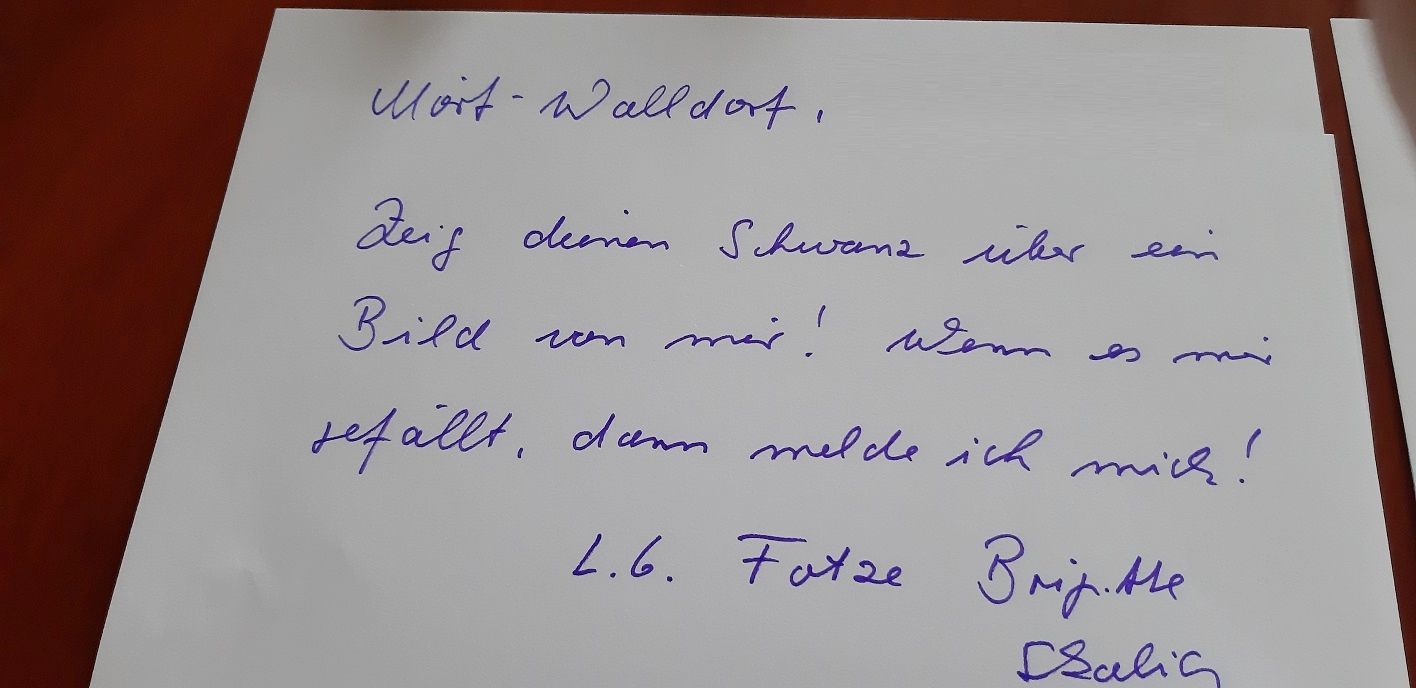 Mörf-Walldorf,
Zeig deinen Schwanz über ein
Bild von mir! Wenn es mir
gefällt, dann melde ich mich!
L.G. Fotze Brigitte